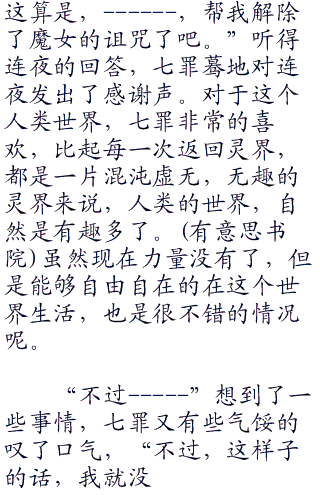 这算是，------，帮我解除
了魔女的诅咒了吧。”听得
连夜的回答，七罪蓦地对连
夜发出了感谢声。对于这个
人类世界，七罪非常的喜
欢，比起每一次返回灵界，
都是一片混沌虚无，无趣的
灵界来说，人类的世界，自
然是有趣多了。(有意思书
院)虽然现在力量没有了，但
是能够自由自在的在这个世
界生活，也是很不错的情况
呢。
“不过-----”想到了一
些事情，七罪又有些气馁的
叹了口气，“不过，这样子
的话，我就没